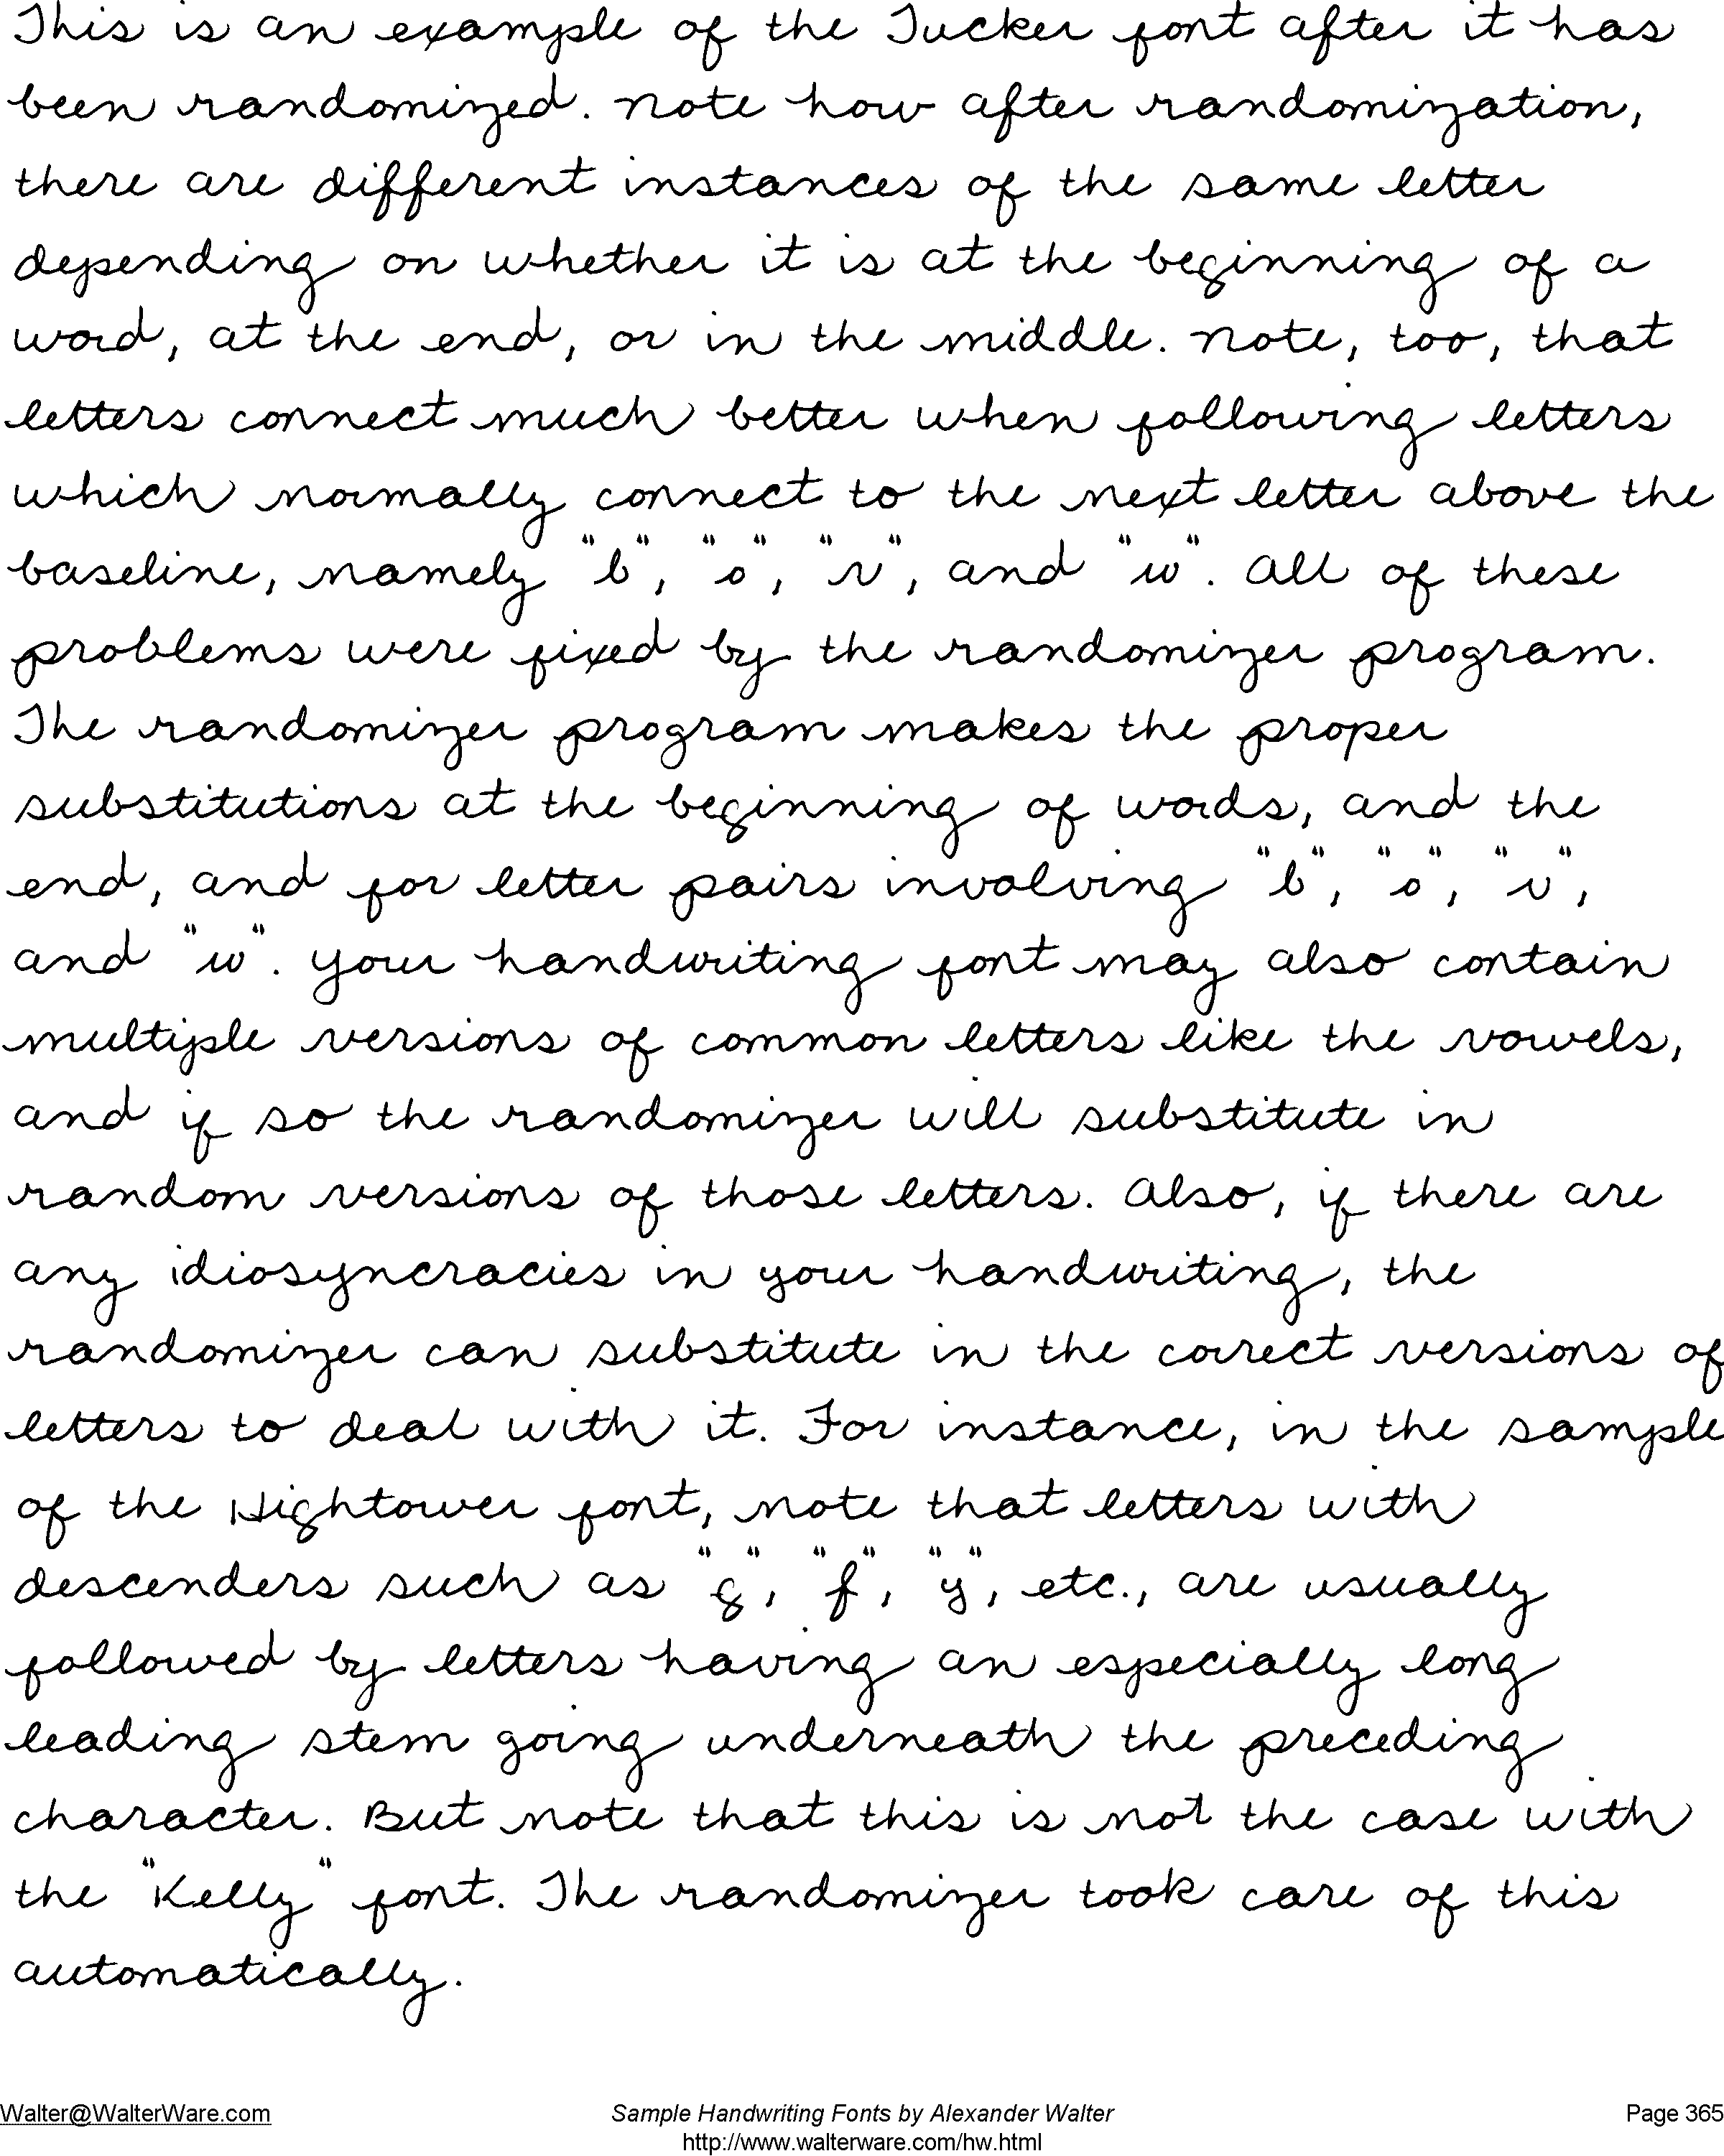 This is an example of the Tucker font after it has
been randomized. Note how after randomization,
there are different instances of the same letter
depending on whether it is at the beginning of a
word, at the end, or in the middle. Note, too, that
letters connect much better when following letters
which normally connect to the next letter above the
baseline, namely "b", "o", "v", and "w". All of these
problems were fixed by the randomizer program.
The randomizer program makes the proper
substitutions at the beginning of words, and the
end, and for letter pairs involving "b", "o", "v",
and "w". Your handwriting font may also contain
multiple versions of common letters like the vowels,
and if so the randomizer will substitute in
random versions of those letters. Also, if there are
any idiosyncracies in your handwriting, the
randomizer can substitute in the correct versions of
letters to deal with it. For instance, in the sample
of the Hightower font, note that letters with
descenders such as "g", "f", "y", etc., are usually
followed by letters having an especially long
leading stem going underneath the preceding
character. But note that this is not the case with
the "Kelly" font. The randomizer took care of this
automatically.
Walter@WalterWare.com Sample Handwriting Fonts by Alexander Walter Page 365
http://www.walterware.com/hw.html